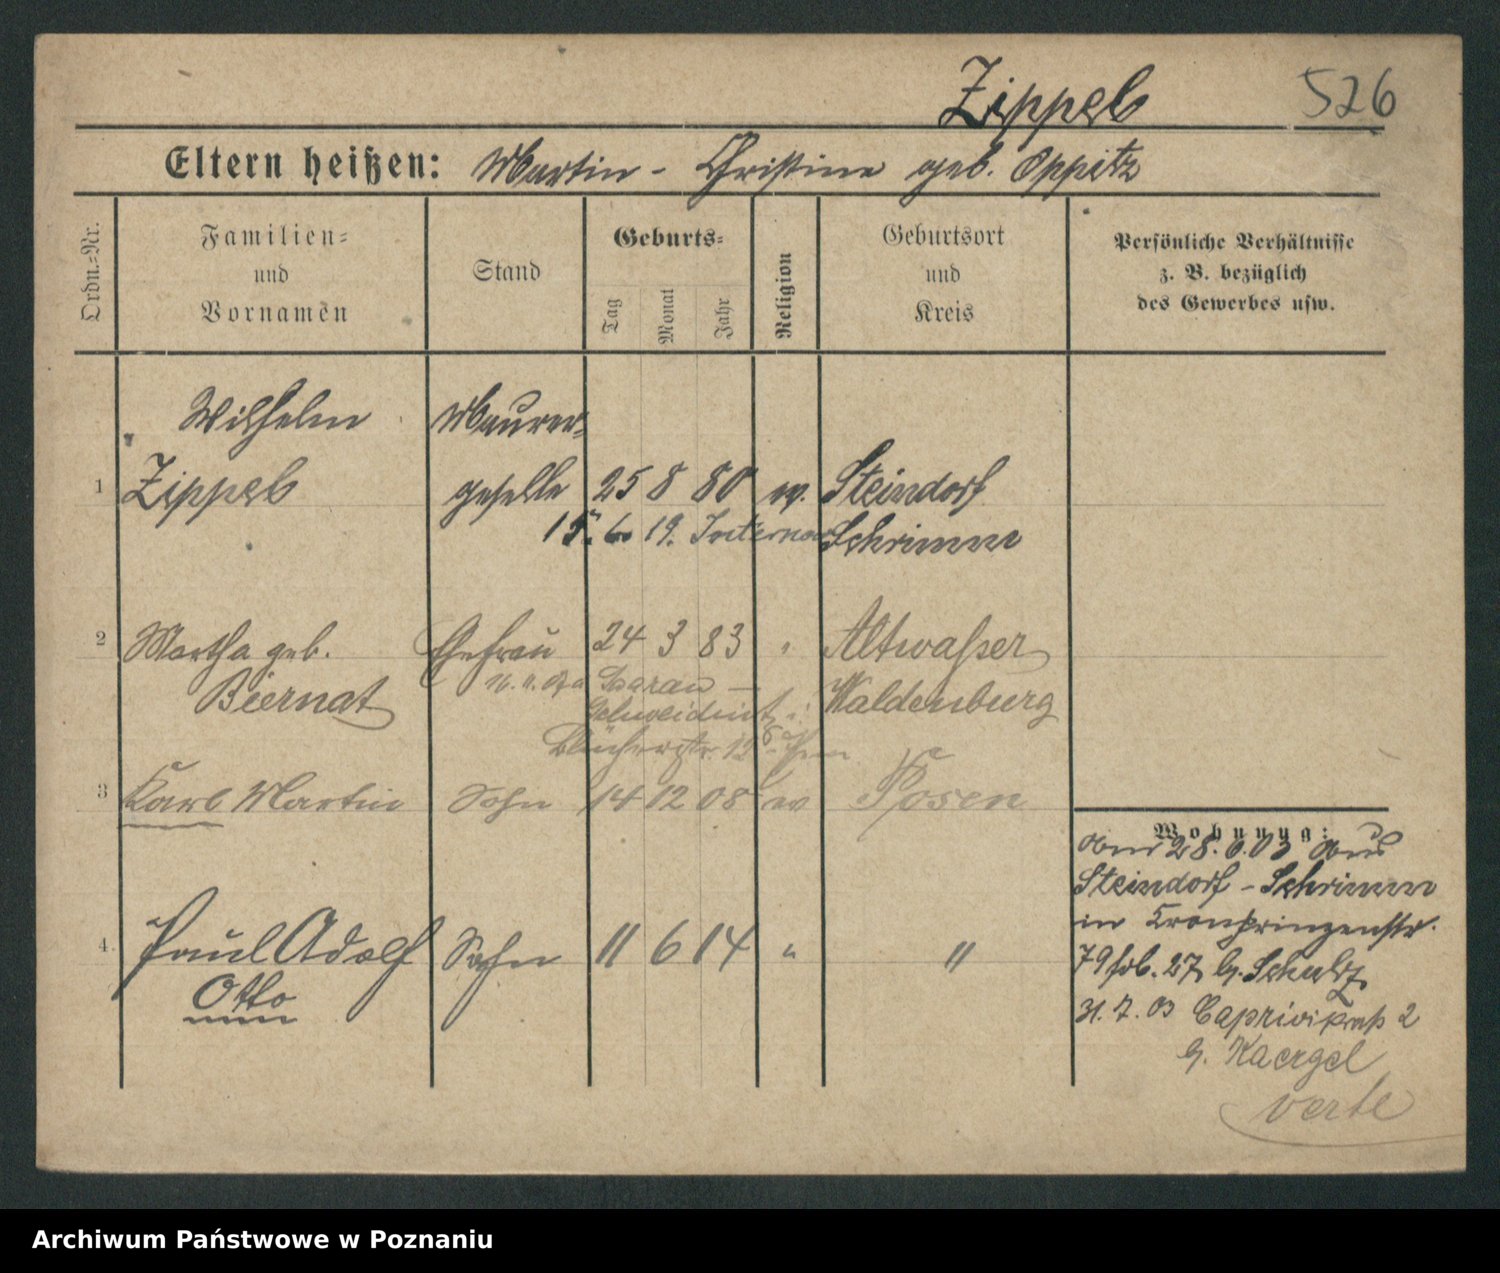 Zippel 526
Eltern heißen: Martin - Christine geb. Oppitz
Ordn.-Nr.
Familien-
und
Vornamen
Stand
Geburts-
Tag
Monat
Jahr
Religion
Geburtsort
und
Kreis
Persönliche Verhältnisse
z. B. bezüglich
des Gewerbes usw.
Wilhelm Maurer-
1 Zippel geselle 25 8 80 ev. Steindorf
15. 6. 19. Schrimm
2 Martha geb. Ehefrau 24 3 83 " Altwasser
Biernat Waldenburg
3 Karl Martin Sohn 14 12 08 ev Posen
4. Paul Adolf Sohn 11 6 14 " "
Otto
Wohnung:
28. 6. 03 aus
Steindorf - Schrimm
in Kronprinzenstr.
79 b. Schulz
31. 7. 03 Caprivistraß 2
b. Kaergel
verte
Archiwum Państwowe w Poznaniu